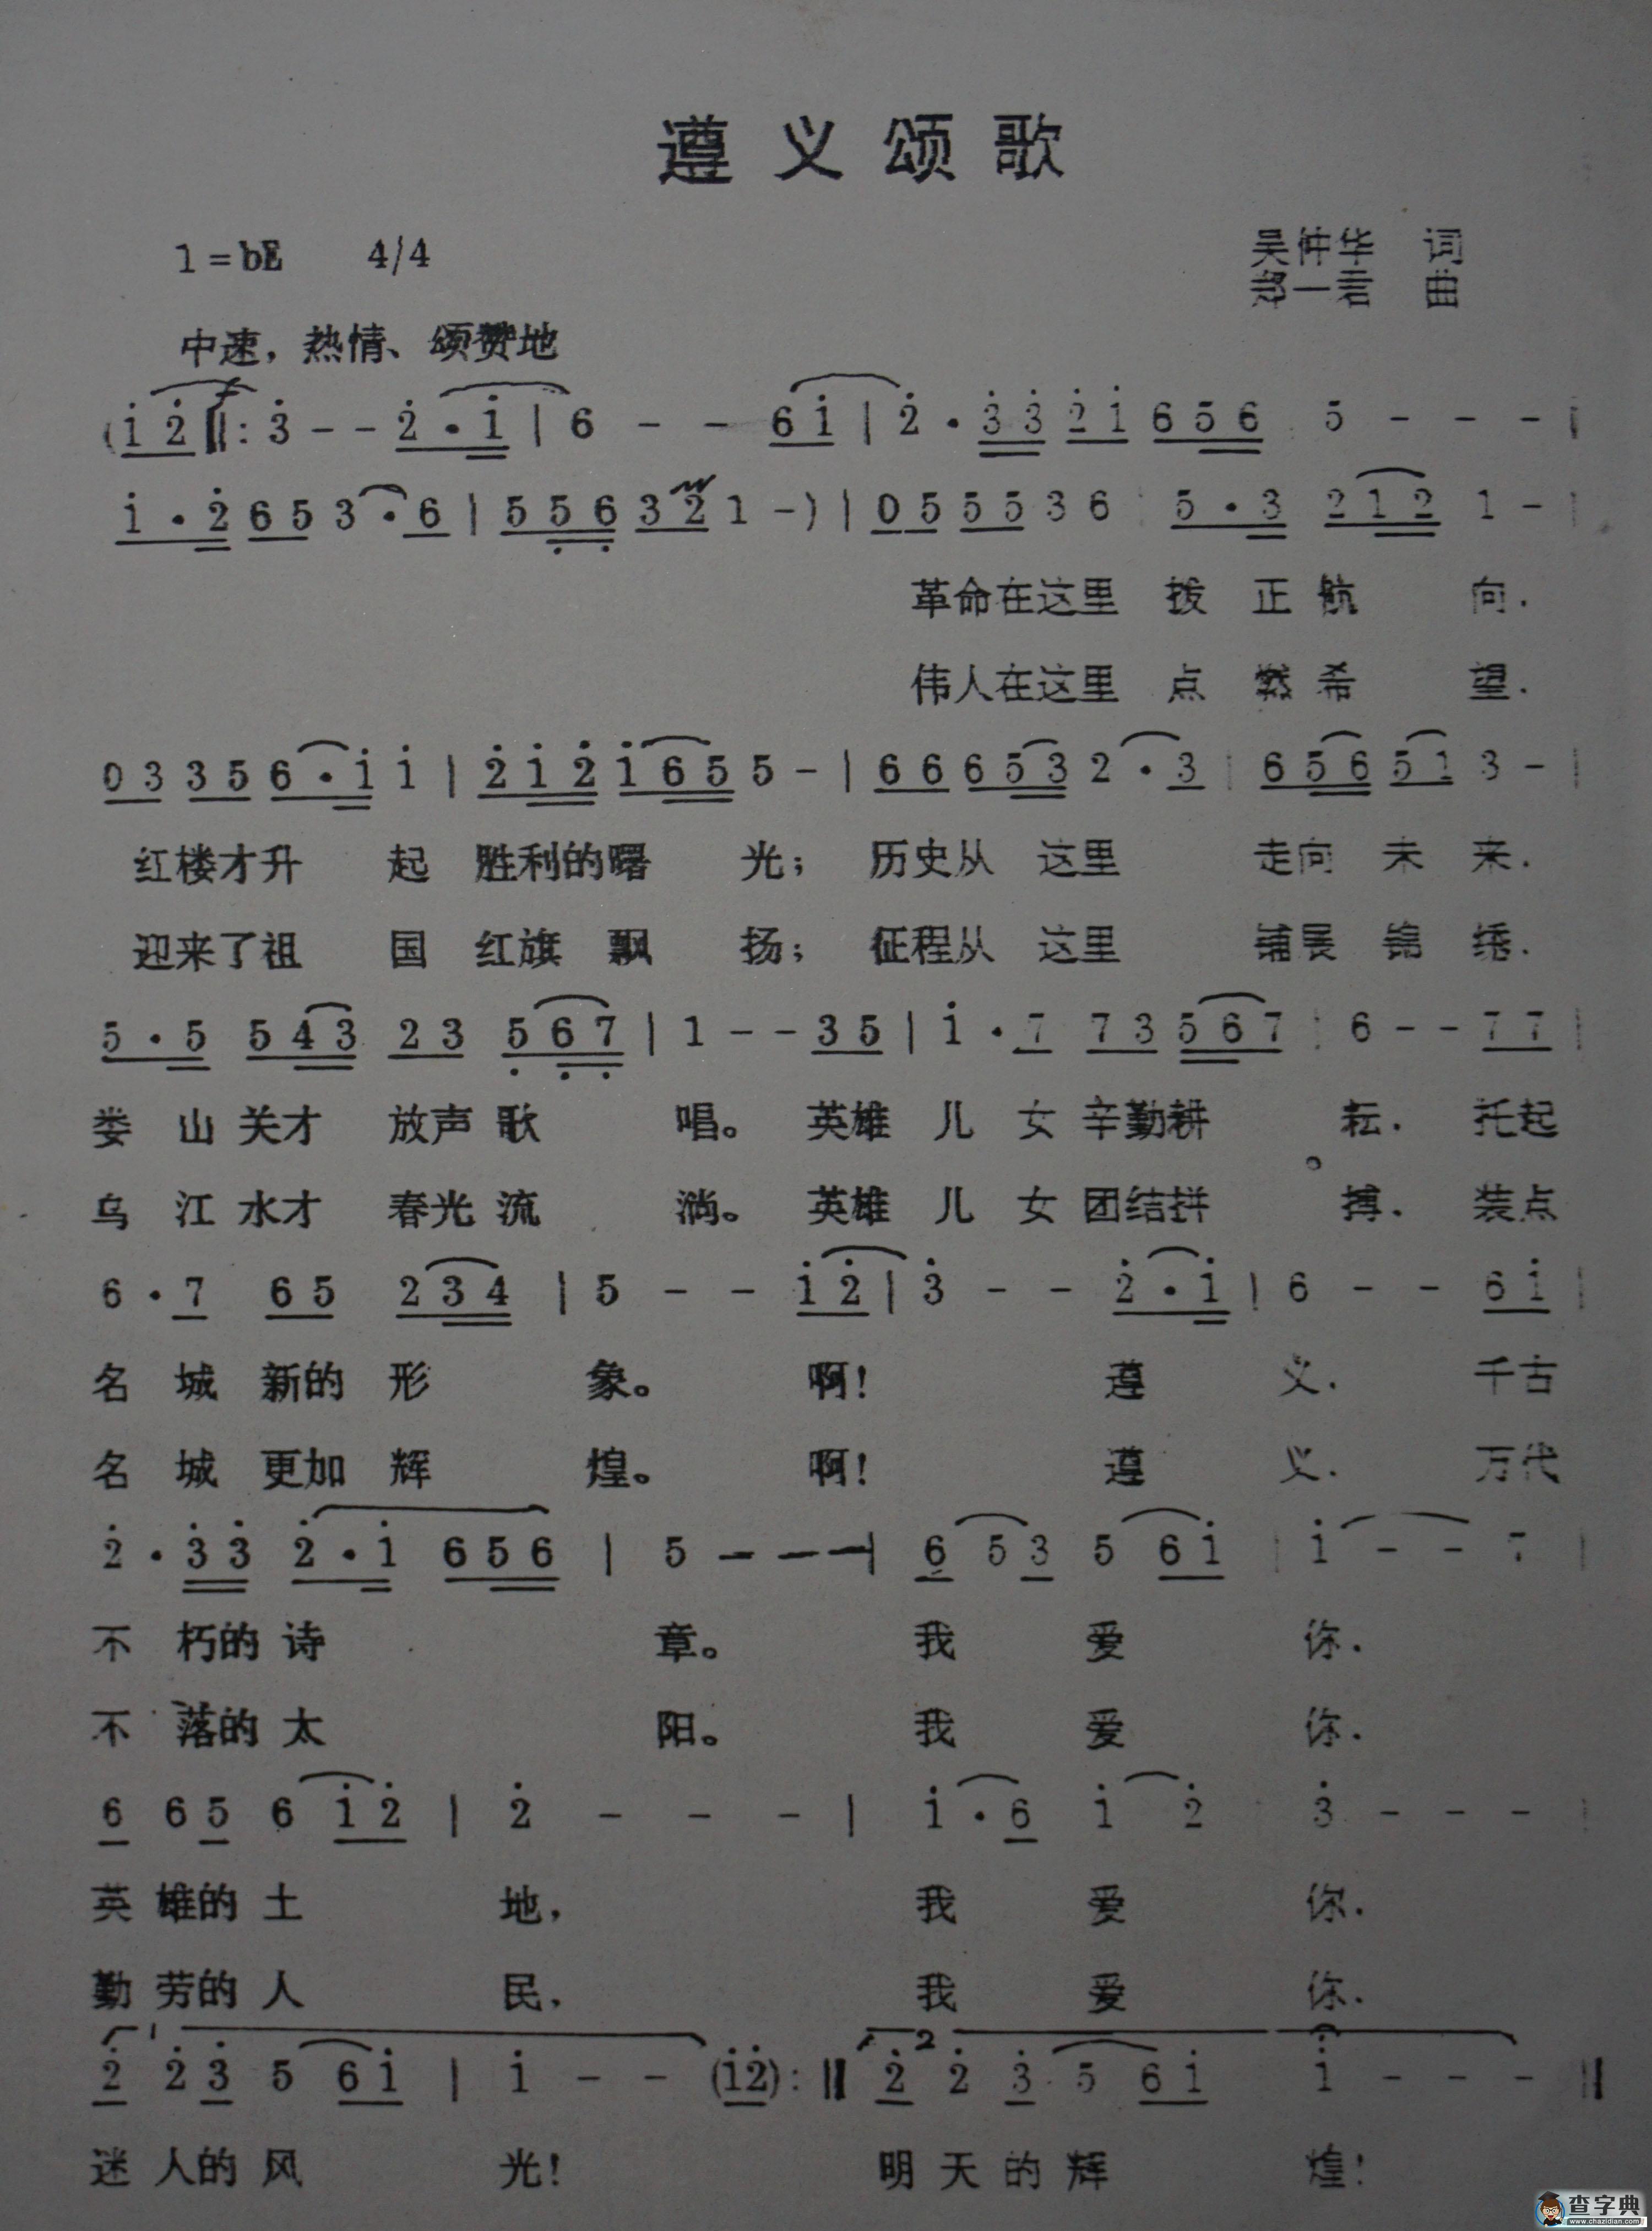 遵义颂歌
1=bE 4/4
吴仲华 词
郑一君 曲
中速，热情、颂赞地
(i̇ 2̇ ‖: 3̇ - - 2̇·i̇ | 6 - - 6i̇ | 2̇·3̇3̇ 2̇i̇ 656 5 - - - |
i̇·2̇ 65 3·6 | 55̣6̣ 32 1 -) | 05 55 3 6 | 5·3 212 1 - |
革命在这里 拨 正 航 向.
伟人在这里 点 燃 希 望.
03 35 6·i̇ i̇ | 2̇i̇2̇ i̇65 5 - | 66 653 2·3 | 656 51 3 - |
红楼才升 起 胜利的曙 光； 历史从 这里 走向 未 来.
迎来了祖 国 红旗 飘 扬； 征程从 这里 铺展 锦 绣.
5·5 543 23 5̣6̣7̣ | 1 - - 35 | i̇·7 73 567 | 6 - - 77 |
娄 山 关才 放声 歌 唱。 英雄 儿 女 辛勤耕 耘. 托起
乌 江 水才 春光 流 淌。 英雄 儿 女 团结拼 搏. 装点
6·7 65 234 | 5 - - i̇2̇ | 3̇ - - 2̇·i̇ | 6 - - 6i̇ |
名 城 新的 形 象。 啊! 遵 义. 千古
名 城 更加 辉 煌。 啊! 遵 义. 万代
2̇·3̇3̇ 2̇·i̇ 656 | 5 - - - | 6 5 3 5 6i̇ | i̇ - - 7 |
不 朽的 诗 章。 我 爱 你.
不 落的 太 阳。 我 爱 你.
6 6 5 6 i̇2̇ | 2̇ - - - | i̇·6 i̇ 2̇ 3̇ - - - |
英 雄的 土 地， 我 爱 你.
勤 劳的 人 民， 我 爱 你.
1 2
2̇ 2̇ 3̇ 5 6i̇ | i̇ - - (i̇2̇) :‖ 2̇ 2̇ 3̇ 5 6i̇ i̇ - - - ‖
迷 人的 风 光! 明 天 的 辉 煌!
查字典
www.chazidian.com